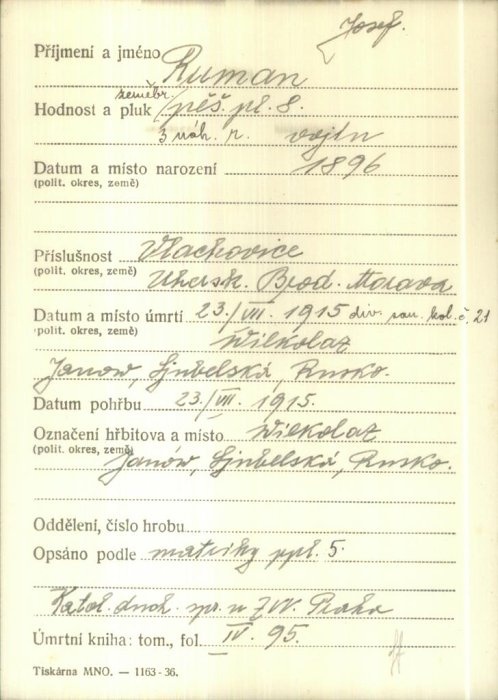 Josef.
Příjmení a jméno Ruman
zeměbr.
Hodnost a pluk pěš. pl. 8.
3 náh. r. vojín
Datum a místo narození 1896
(polit. okres, země)
Příslušnost Vlachovice
(polit. okres, země) Uhersk. Brod. Morava
Datum a místo úmrtí 23./VII. 1915 div. san. kol. č. 21
(polit. okres, země) Wilkolaz
Janow, Ljubelská, Rusko.
Datum pohřbu 23./VII. 1915.
Označení hřbitova a místo Wilkolaz
(polit. okres, země) Janów, Ljubelská, Rusko.
Oddělení, číslo hrobu
Opsáno podle matriky ppl. 5.
Katol. duch. spr. u ZVV. Praha
Úmrtní kniha: tom., fol. IV. 95.
Tiskárna MNO. — 1163-36.